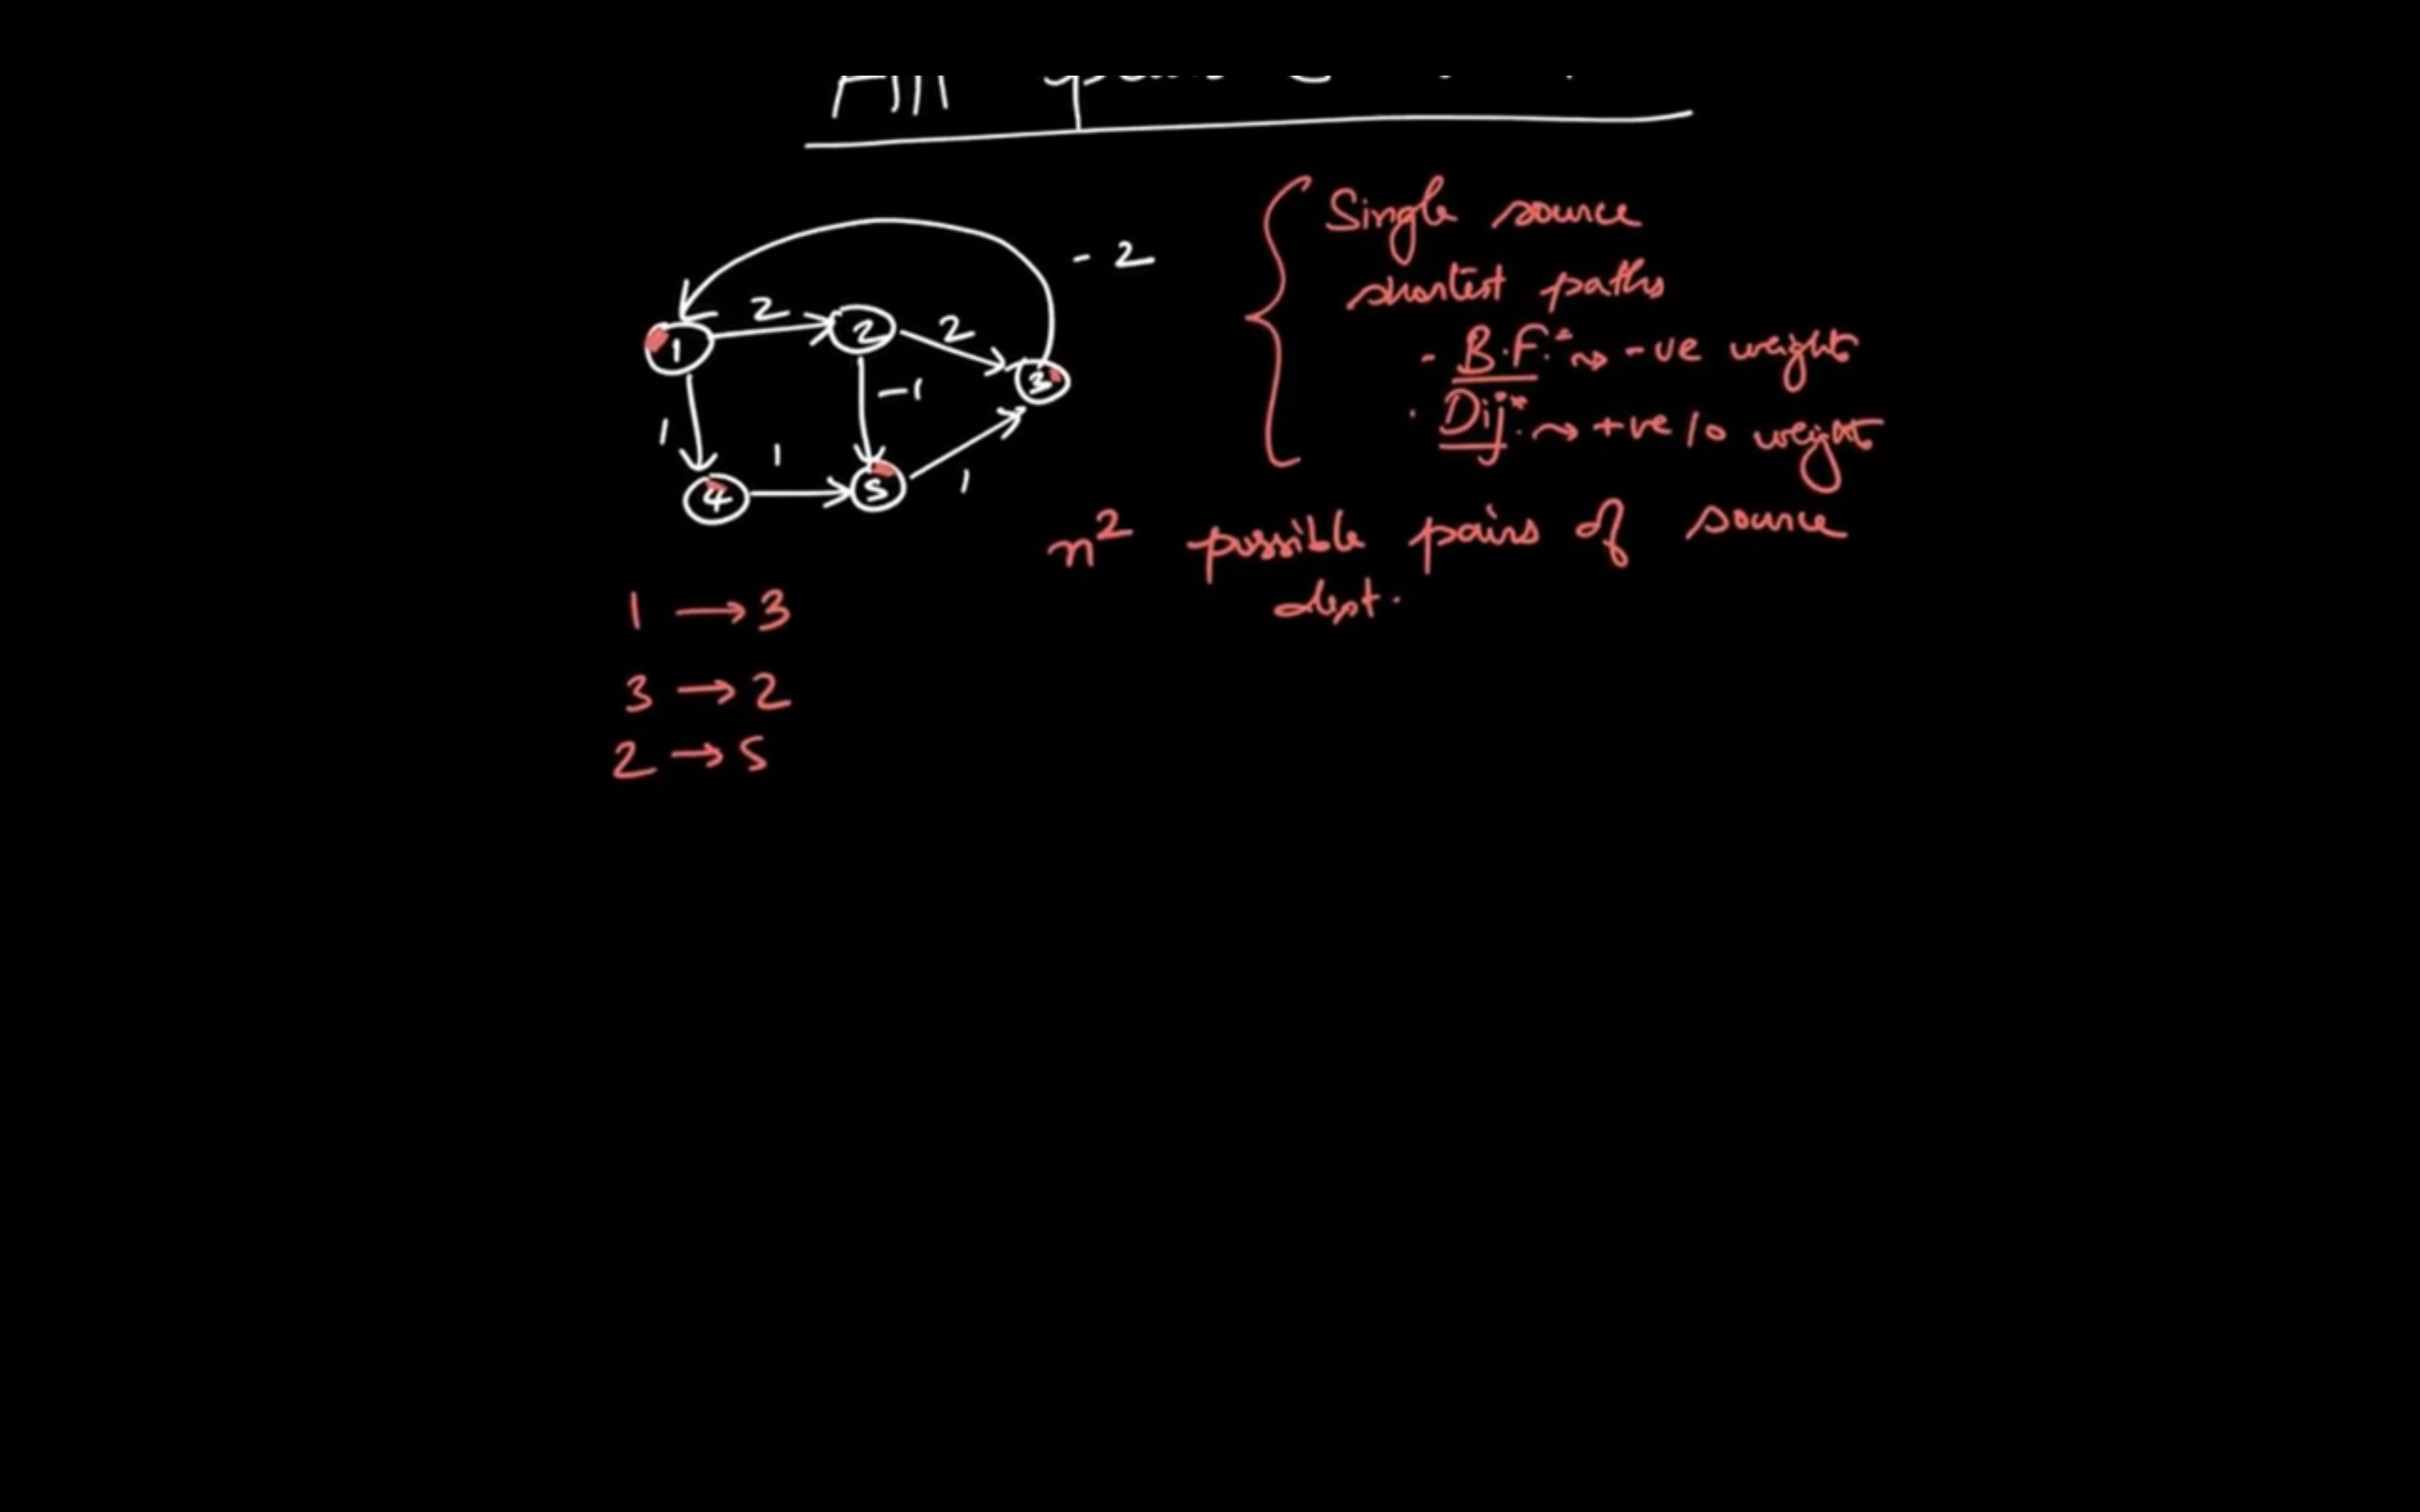 All
- 2
2
1
2
2
-1
3
1
1
4
5
1
Single source
shortest paths
- B.F. -ve weights
. Dij. +ve / 0 weight
n² possible pairs of source
dest.
1 → 3
3 → 2
2 → 5